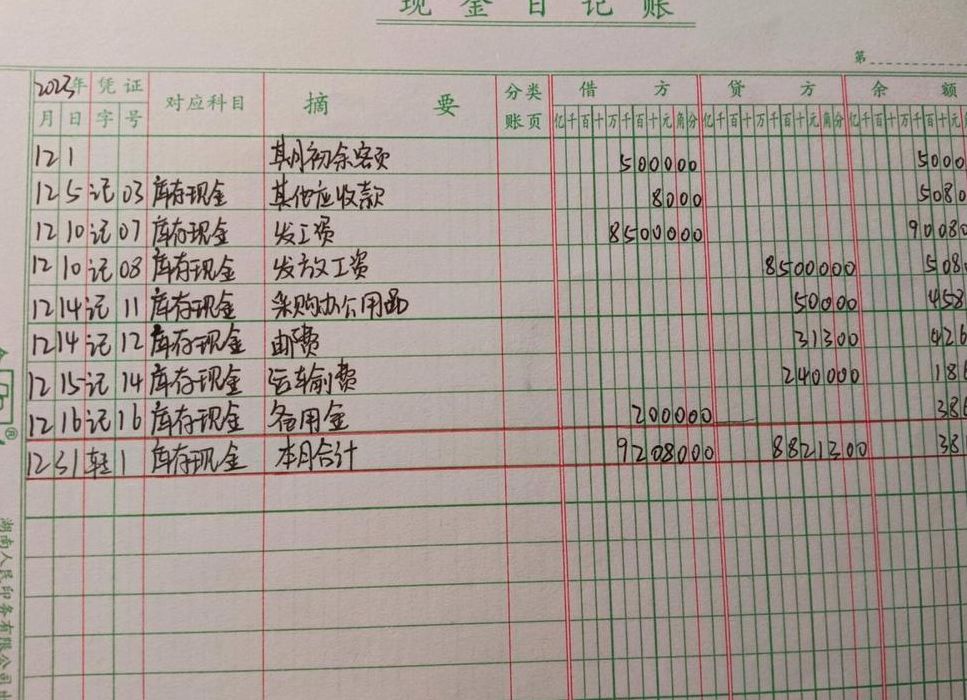 现金日记账
第
2023年 凭证 对应科目 摘要 分类账页 借方 贷方 余额
月 日 字 号 亿千百十万千百十元角分 亿千百十万千百十元角分 亿千百十万千百十元
12 1 期初余额 500000 5000
12 5 记 03 库存现金 其他应收款 8000 5080
12 10 记 07 库存现金 发工资 8500000 90080
12 10 记 08 库存现金 发放工资 8500000 508
12 14 记 11 库存现金 采购办公用品 50000 458
12 14 记 12 库存现金 邮费 31300 426
12 15 记 14 库存现金 运输费 240000 186
12 16 记 16 库存现金 备用金 200000 386
12 31 1 库存现金 本月合计 9208000 8821300 38
湖南人民印务有限公司